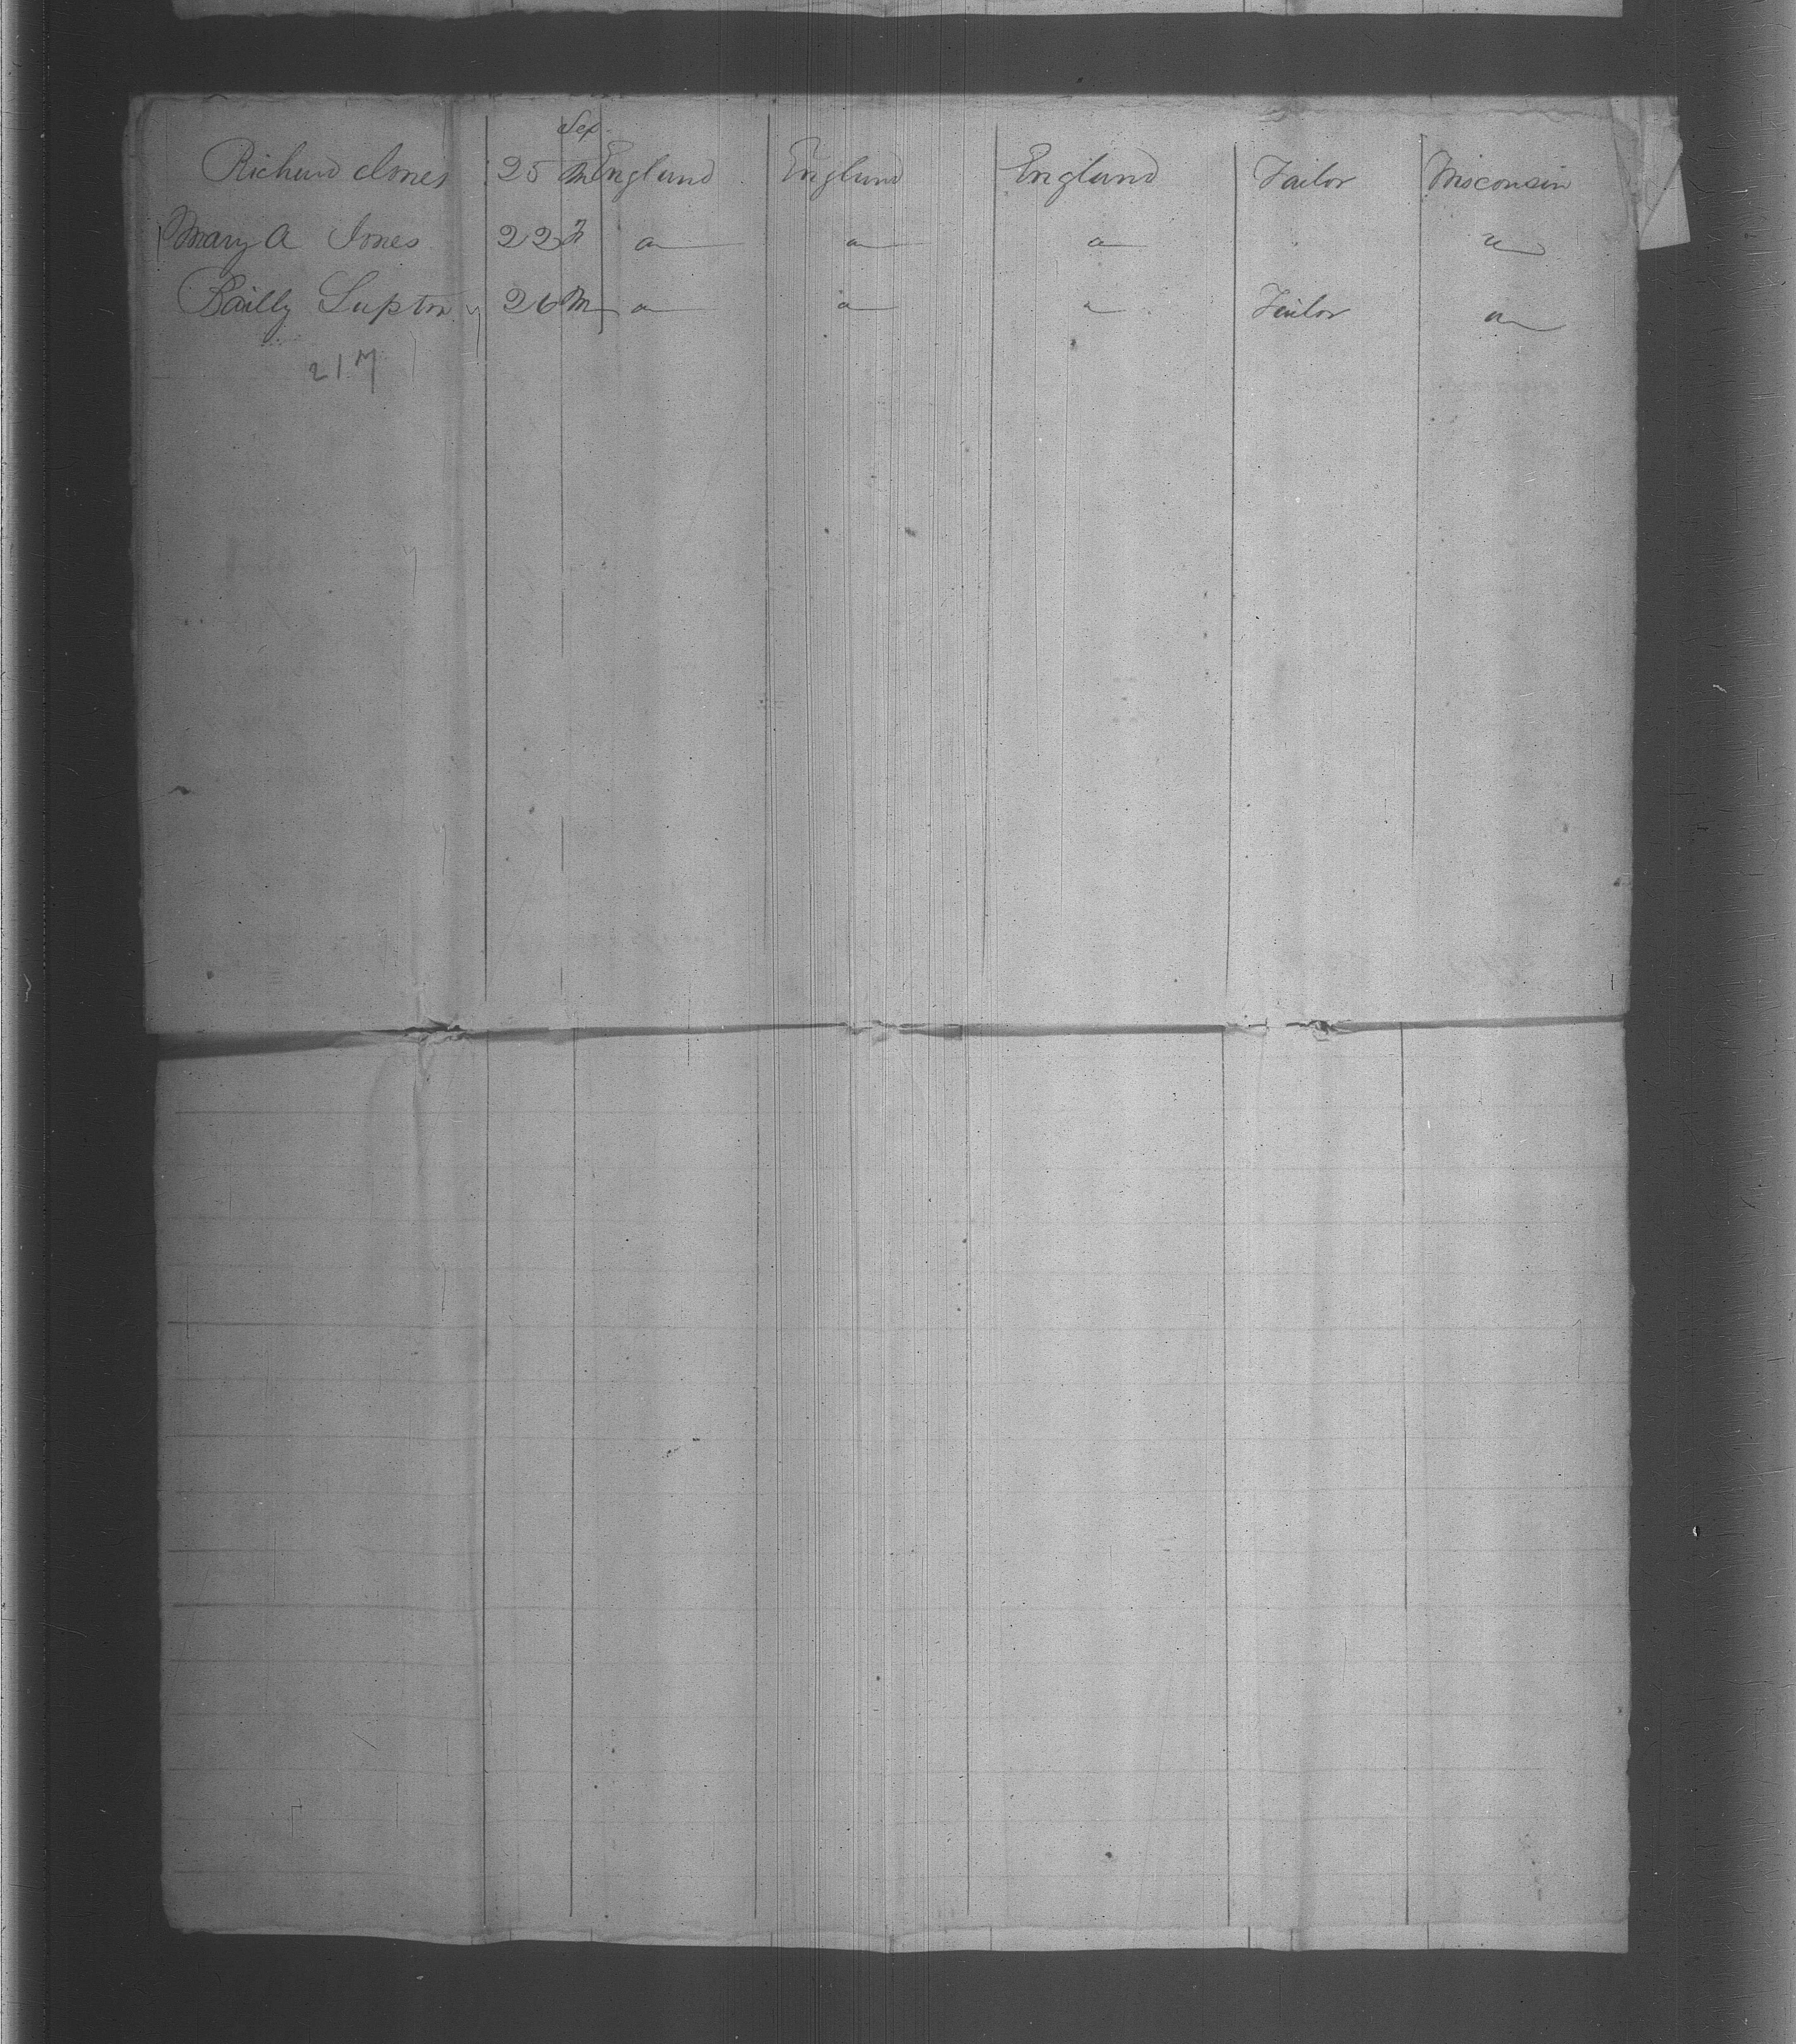 Sex
Richard Jones 25 M England England England Tailor Wisconsin
Mary A Jones 22 F " " " "
Bailly Lupton 26 M " " " Tailor "
217